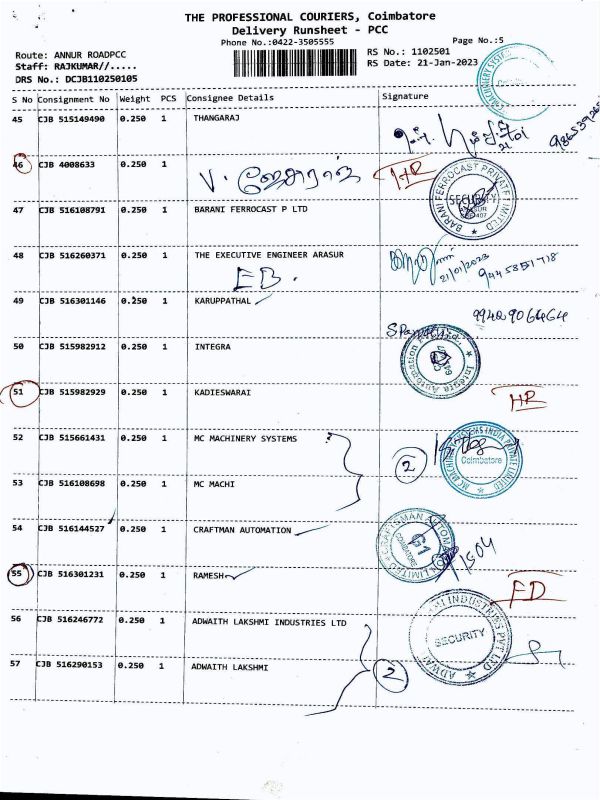 THE PROFESSIONAL COURIERS, Coimbatore
Delivery Runsheet - PCC
Phone No.:0422-3505555
Page No.:5
Route: ANNUR ROADPCC
RS No.: 1102501
Staff: RAJKUMAR//.....
RS Date: 21-Jan-2023
DRS No.: DCJB110250105
S No Consignment No Weight PCS Consignee Details Signature
45 CJB 515149490 0.250 1 THANGARAJ
46 CJB 4008633 0.250 1 HR
47 CJB 516108791 0.250 1 BARANI FERROCAST P LTD
BARANI FERROCAST PRIVATE LIMITED
SECURITY
48 CJB 516260371 0.250 1 THE EXECUTIVE ENGINEER ARASUR
EB.
21/01/2023
49 CJB 516301146 0.250 1 KARUPPATHAL
9942906464
50 CJB 515982912 0.250 1 INTEGRA
51 CJB 515982929 0.250 1 KADIESWARAI HR
52 CJB 515661431 0.250 1 MC MACHINERY SYSTEMS
2
Coimbatore
53 CJB 516108698 0.250 1 MC MACHI
54 CJB 516144527 0.250 1 CRAFTMAN AUTOMATION
55 CJB 516301231 0.250 1 RAMESH FD
56 CJB 516246772 0.250 1 ADWAITH LAKSHMI INDUSTRIES LTD
SECURITY
57 CJB 516290153 0.250 1 ADWAITH LAKSHMI
2